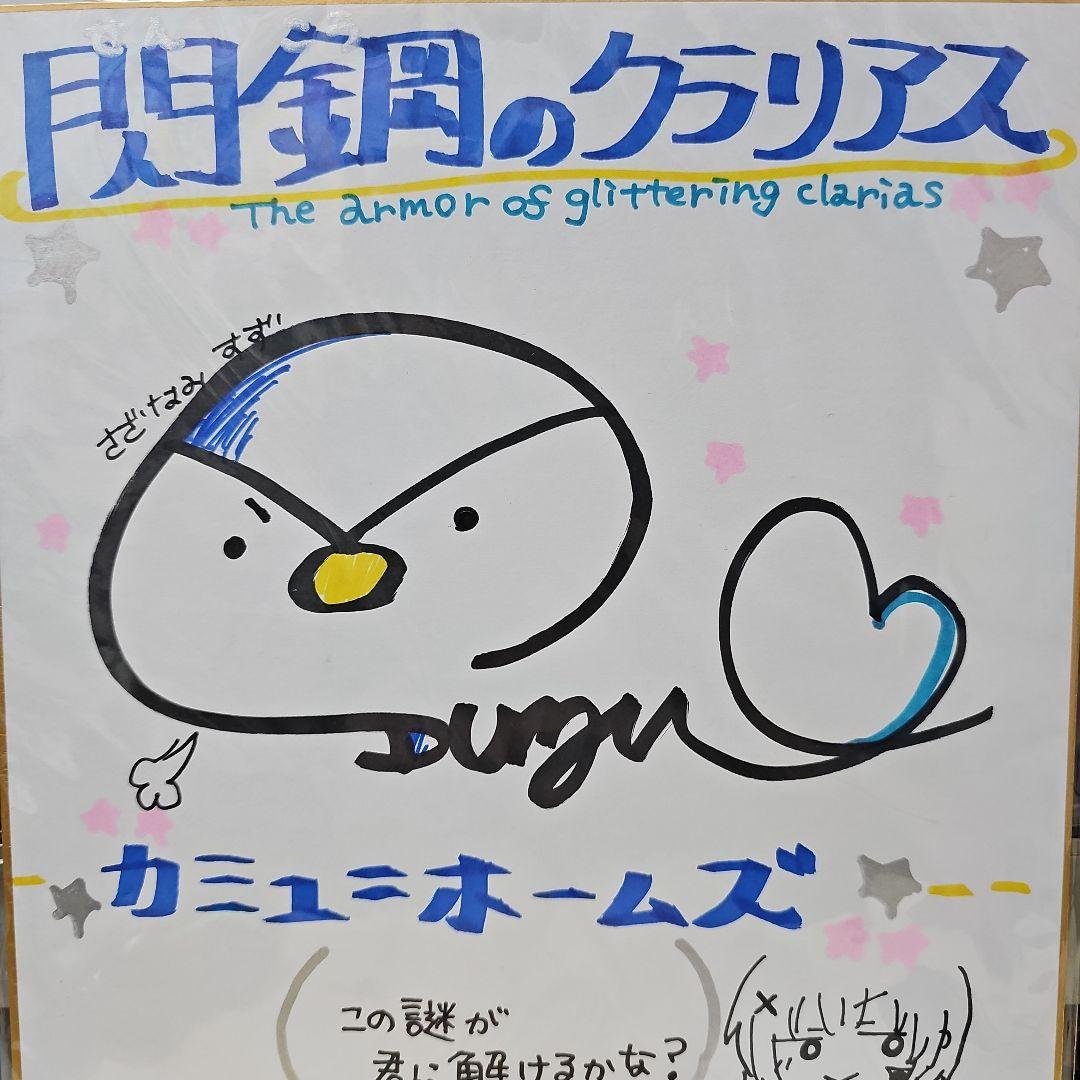 せんこう
閃鋼のクラリアス
The armor of glittering clarias
さざなみ すず
カミュニホームズ
この謎が
君に解けるかな？